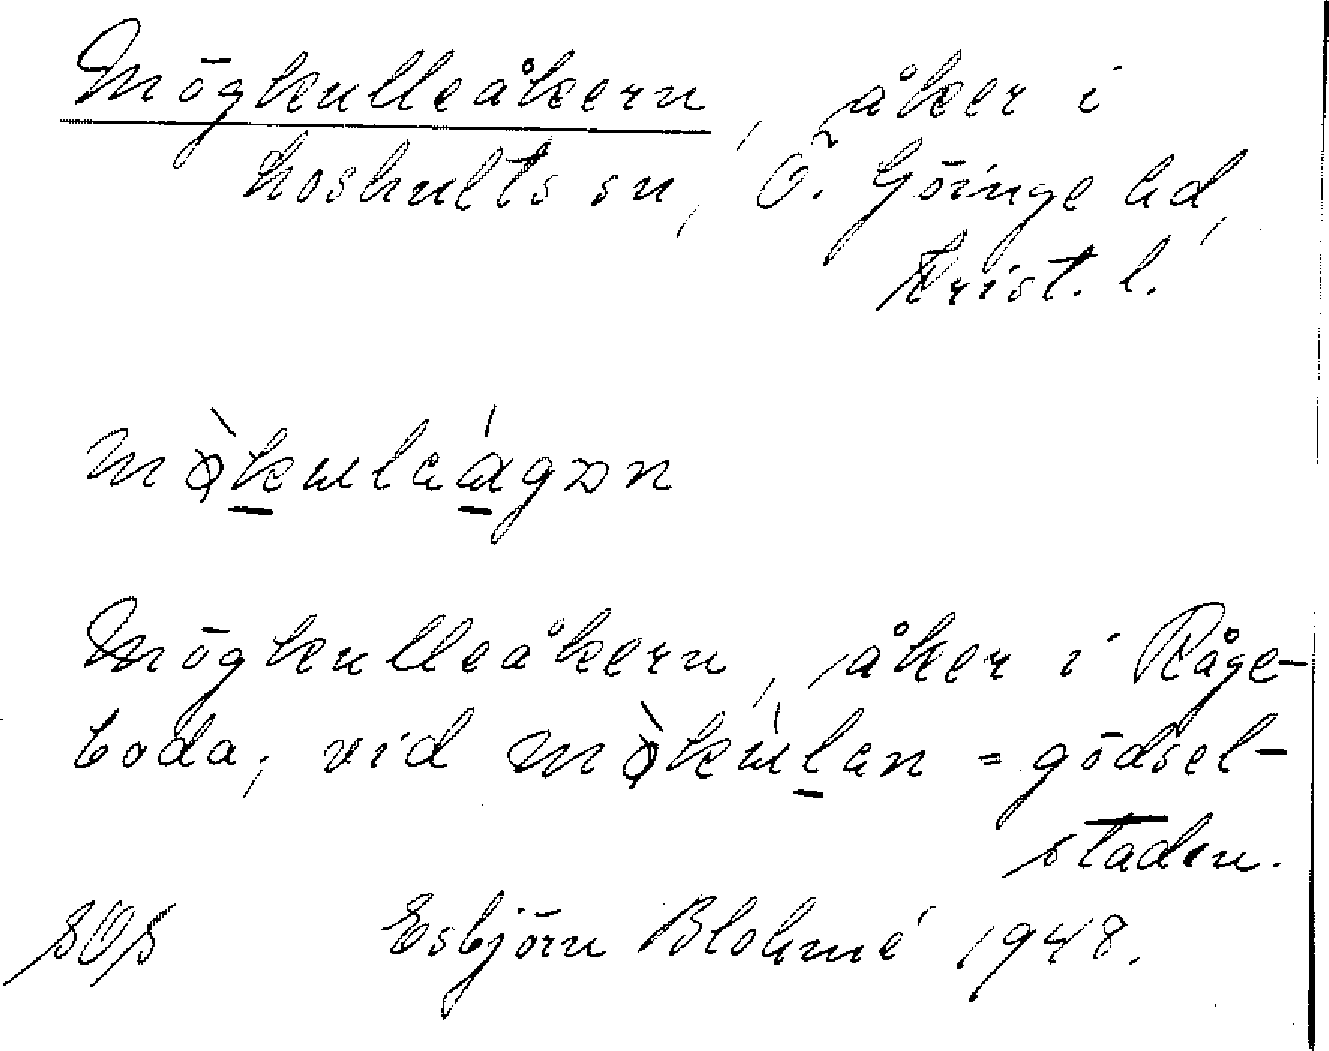 Mögkulleåkern, åker i
Loshults sn, Ö. Göinge hd,
Krist. l.
Mögkulleåkern, åker i Råge-
boda, vid = gödsel-
staden.
SOS Esbjörn Blohmé 1948.